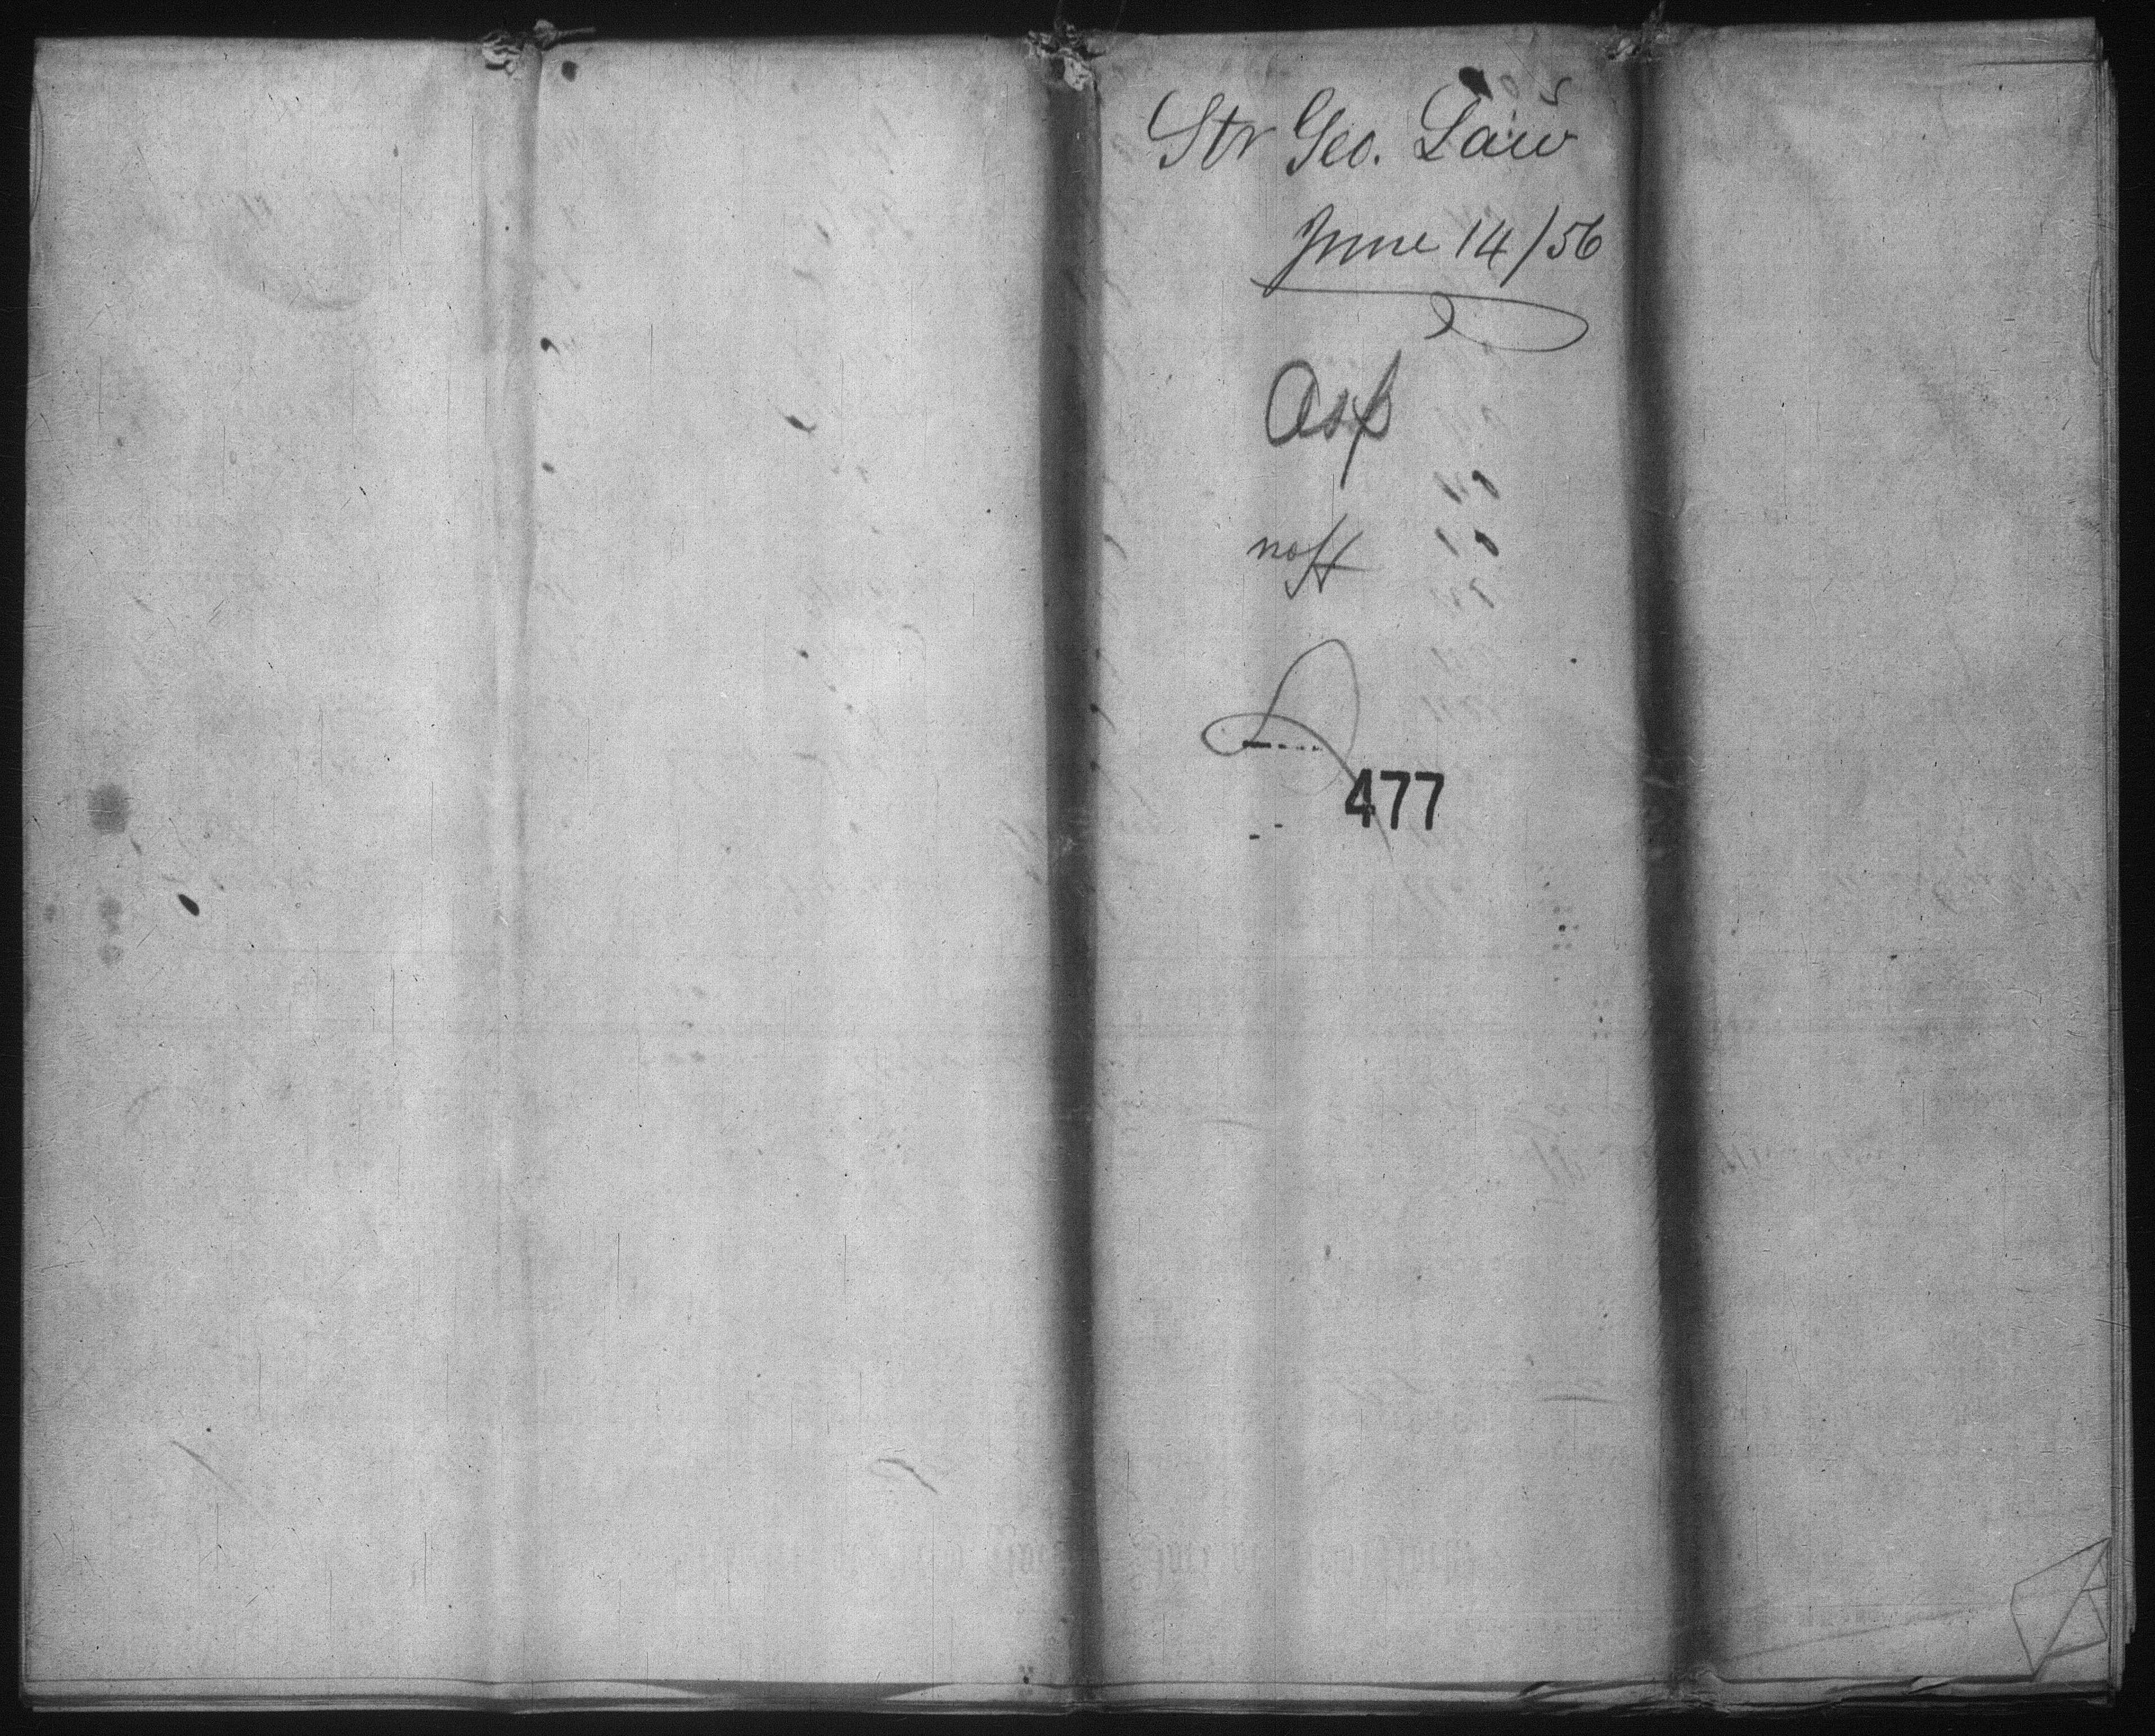 Str Geo. Law
June 14/56
Asp
477